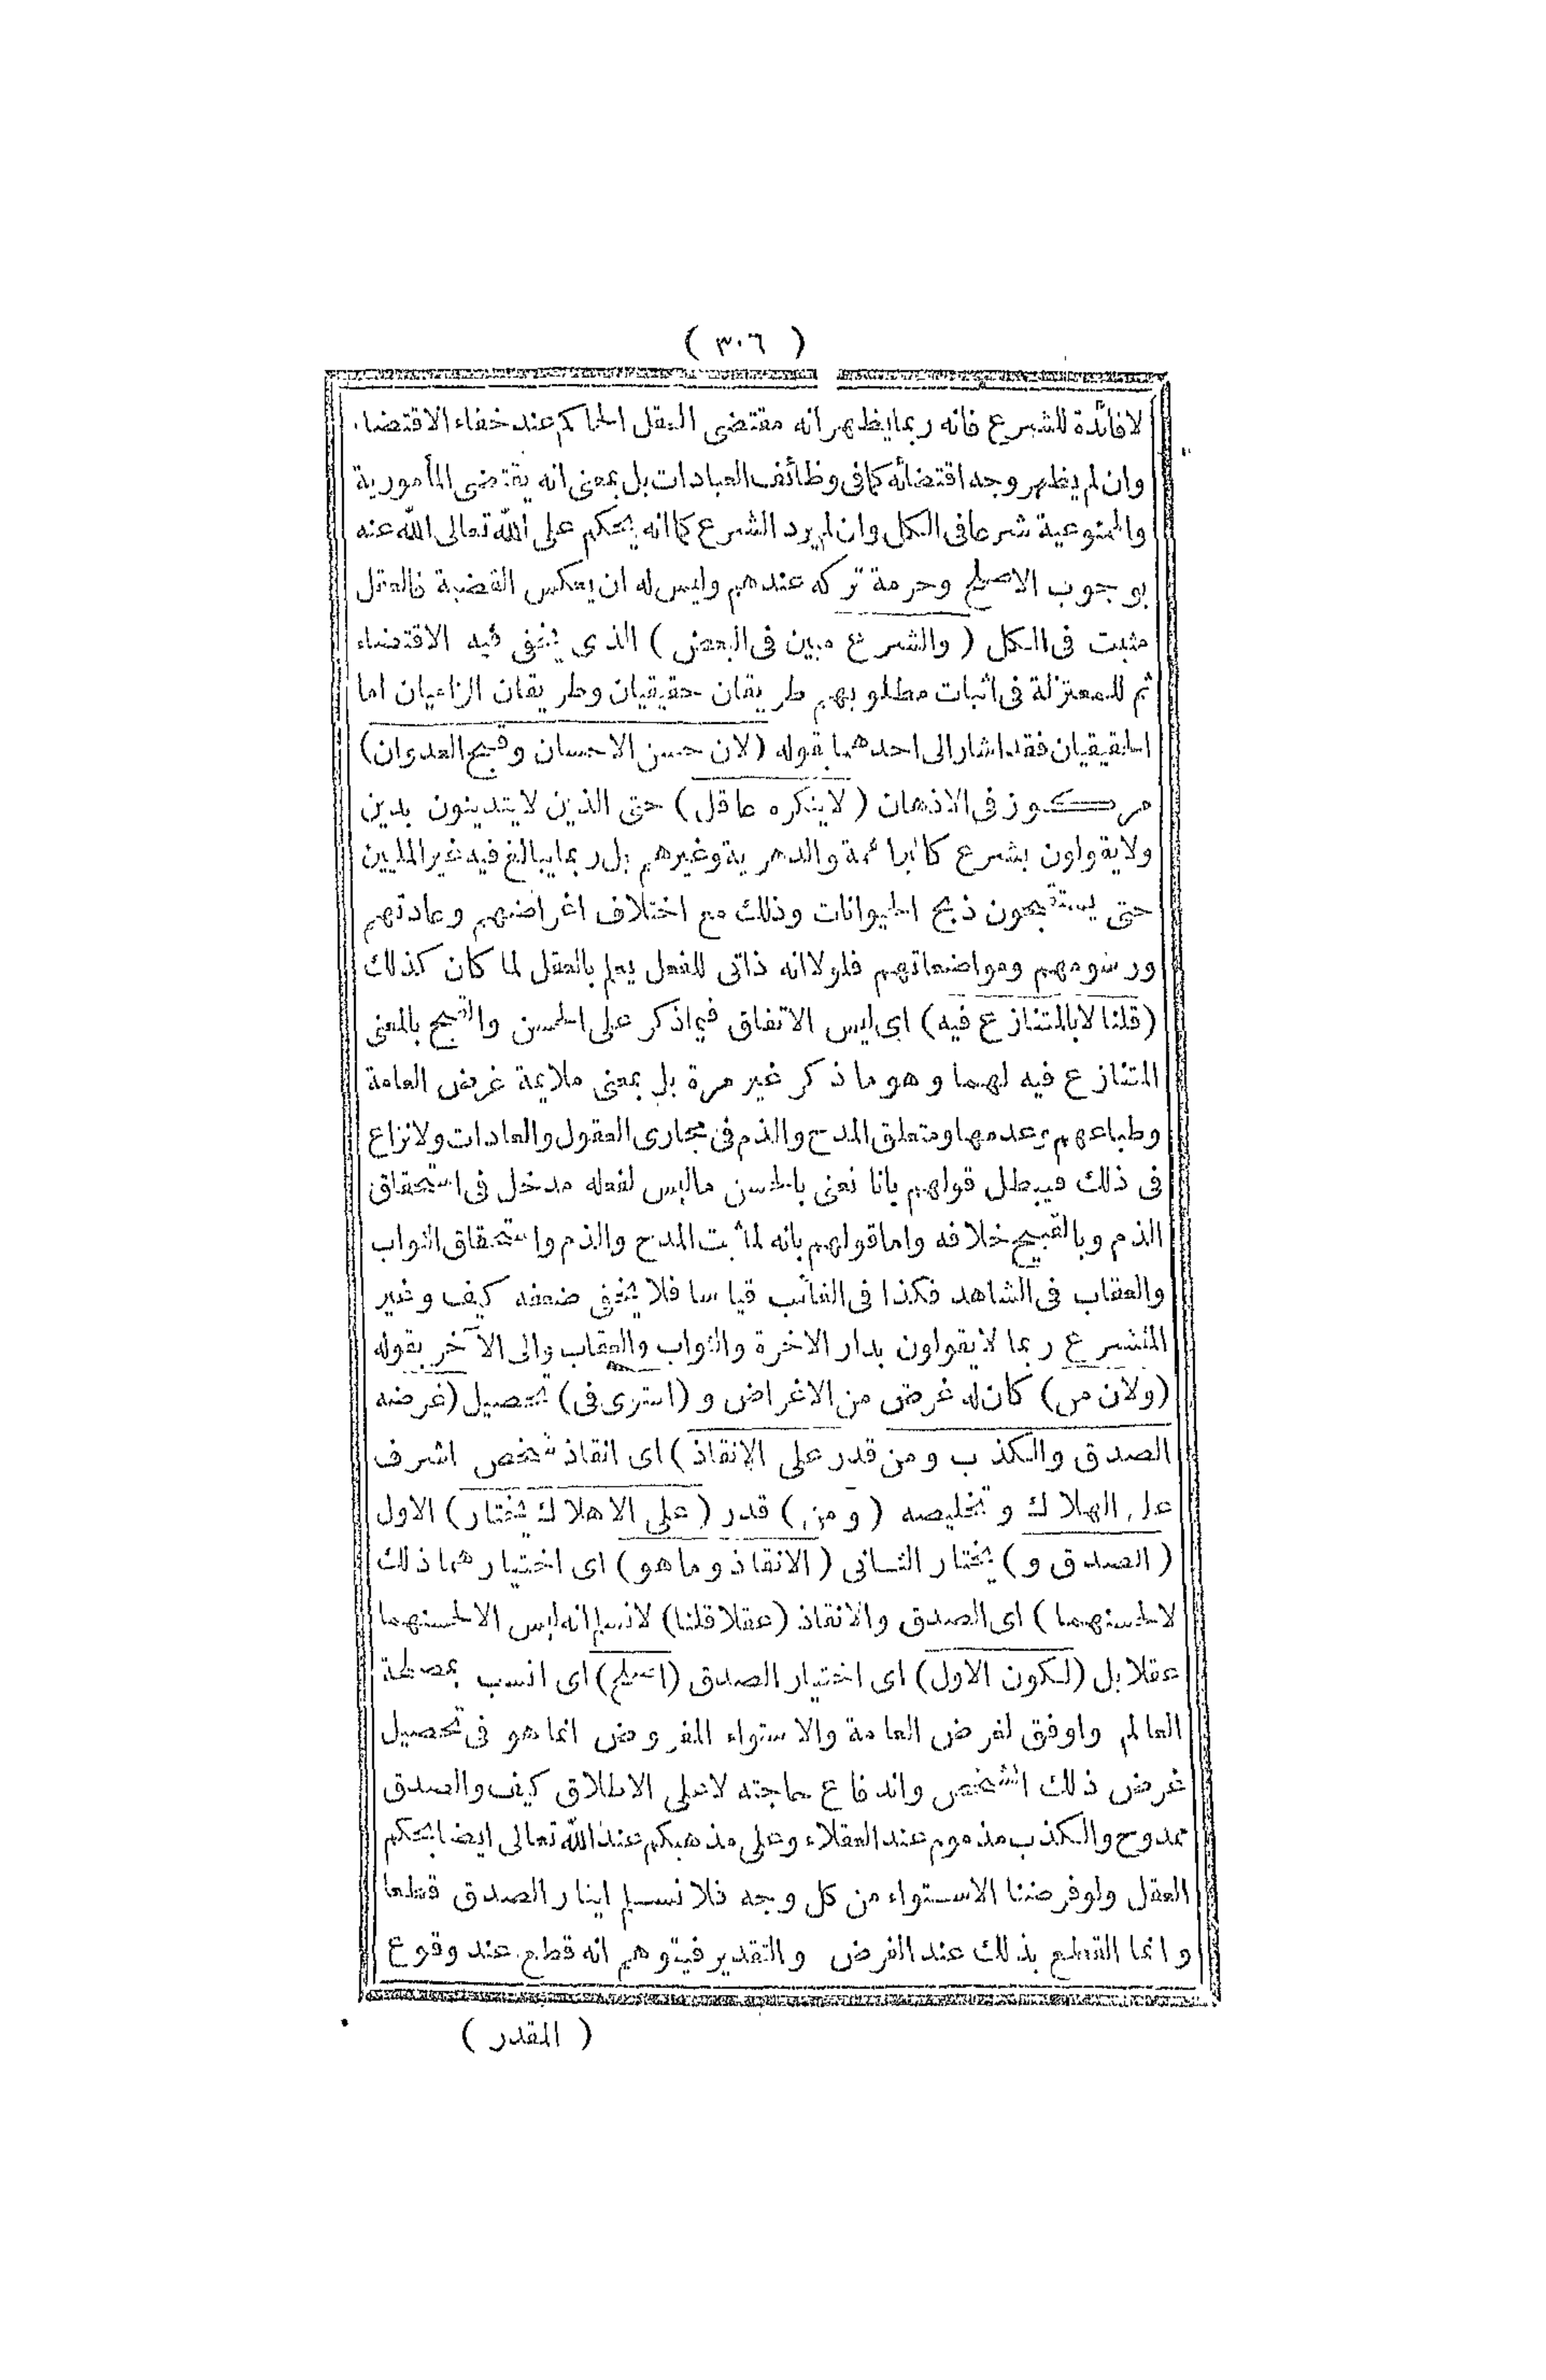 ( ٣٠٦ )
لا فائدة للشرع فانه ربما يظهر انه مقتضى العقل الحاكم عند خفاء الاقتضاء
وان لم يظهر وجه اقتضائه كما فى وظائف العبادات بل بمعنى انه يقتضى المأمورية
والممنوعية شرعا فى الكل وان لم يرد الشرع كما انه يحكم على الله تعالى الله عنه
بوجوب الاصلح وحرمة تركه عندهم وليس له ان يعكس القضية فالعقل
مثبت فى الكل ( والشرع مبين فى البعض ) الذى يخفى فيه الاقتضاء
ثم للمعتزلة فى اثبات مطلوبهم طريقان حقيقيان وطريقان الزاميان اما
الحقيقيان فقد اشار الى احدهما بقوله ( لان حسن الاحسان وقبح العدوان )
مركوز فى الاذهان ( لا ينكره عاقل ) حتى الذين لا يتدينون بدين
ولا يقولون بشرع كالبراهمة والدهرية وغيرهم بل ربما يبالغ فيه غير المليين
حتى يستقبحون ذبح الحيوانات وذلك مع اختلاف اغراضهم وعادتهم
ورسومهم ومواضعاتهم فلولا انه ذاتى للفعل يعلم بالعقل لما كان كذلك
( قلنا لا بالمتنازع فيه ) اى ليس الاتفاق فيما ذكر على الحسن والقبح بالمعنى
المتنازع فيه لهما وهو ما ذكر غير مرة بل بمعنى ملايمة غرض العامة
وطباعهم وعدمها ومتعلق المدح والذم فى مجارى العقول والعادات ولا نزاع
فى ذلك فيبطل قولهم بانا نعنى بالحسن ما ليس لفعله مدخل فى استحقاق
الذم وبالقبيح خلافه واما قولهم بانه لما ثبت المدح والذم واستحقاق الثواب
والعقاب فى الشاهد فكذا فى الغائب قياسا فلا يخفى ضعفه كيف وغير
المتشرع ربما لا يقولون بدار الاخرة والثواب والعقاب والى الآخر بقوله
( ولان من ) كان له غرض من الاغراض و ( استوى فى ) تحصيل ( غرضه
الصدق والكذب ومن قدر على الانقاذ ) اى انقاذ شخص اشرف
على الهلاك وتخليصه ( ومن ) قدر ( على الاهلاك يختار ) الاول
( الصدق و ) يختار الثانى ( الانقاذ وما هو ) اى اختيارهما ذلك
لا لحسنهما ) اى الصدق والانقاذ ( عقلا قلنا ) لا نسلم انه ليس الا لحسنهما
عقلا بل ( لكون الاول ) اى اختيار الصدق ( اصلح ) اى انسب بمصلحة
العالم واوفق لغرض العامة والاستواء المفروض انما هو فى تحصيل
غرض ذلك الشخص واندفاع حاجته لا على الاطلاق كيف والصدق
ممدوح والكذب مذموم عند العقلاء وعلى مذهبكم عند الله تعالى ايضا بحكم
العقل ولو فرضنا الاستواء من كل وجه فلا نسلم ايثار الصدق قطعا
وانما القطع بذلك عند الفرض والتقدير فيتوهم انه قطع عند وقوع
( المقدر )